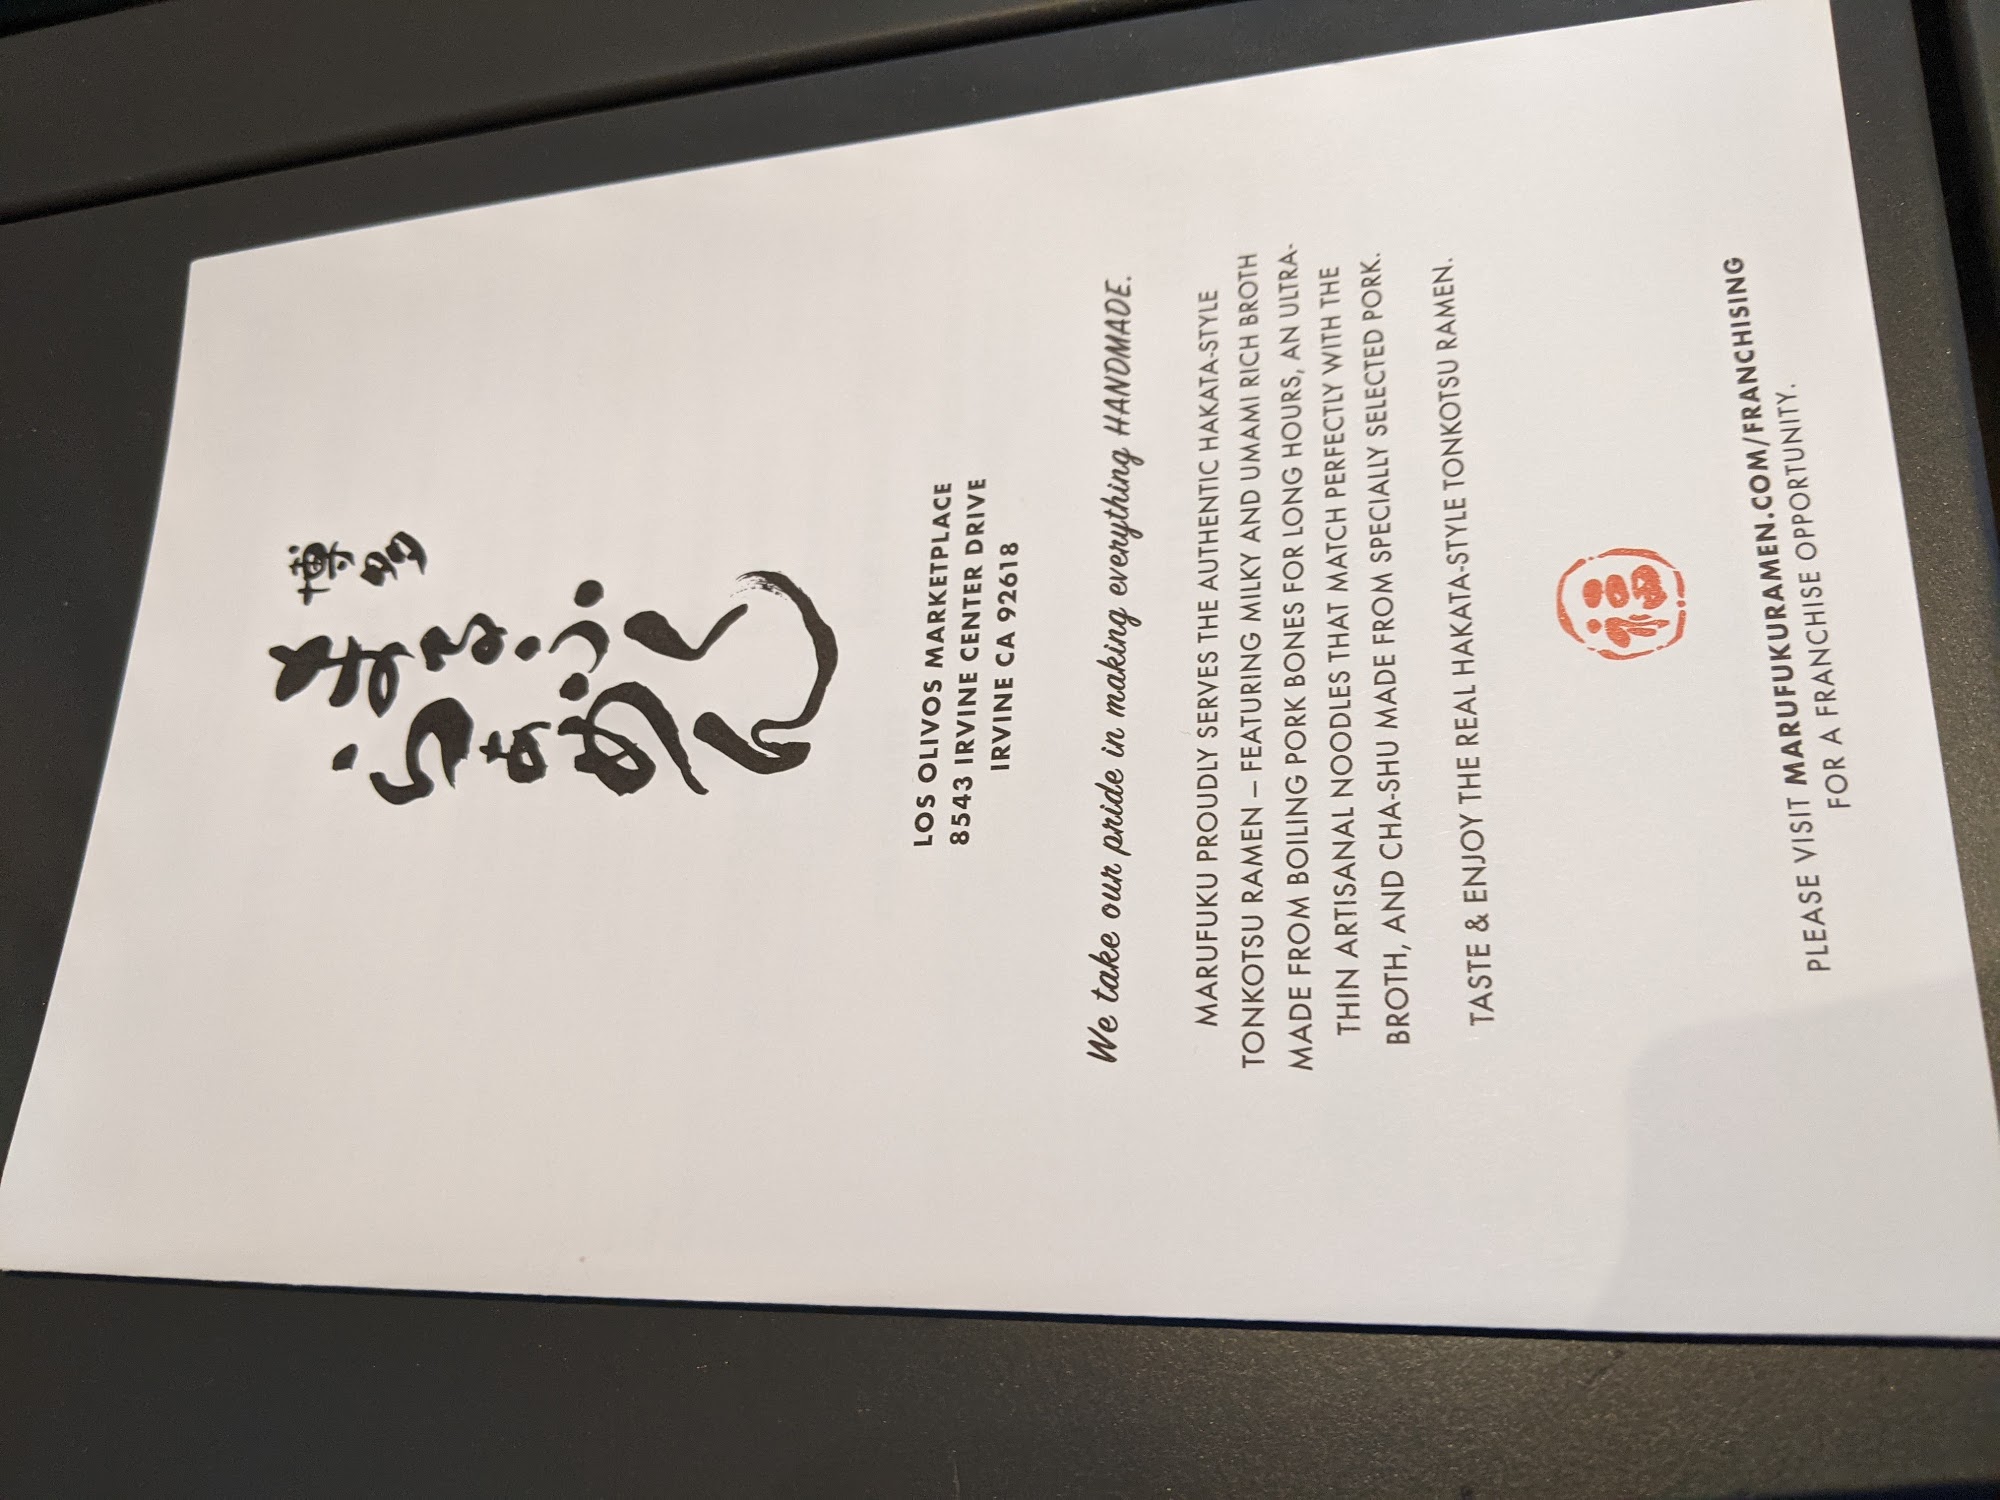 博多
まるふく
らぁめん
LOS OLIVOS MARKETPLACE
8543 IRVINE CENTER DRIVE
IRVINE CA 92618
We take our pride in making everything HANDMADE.
MARUFUKU PROUDLY SERVES THE AUTHENTIC HAKATA-STYLE
TONKOTSU RAMEN – FEATURING MILKY AND UMAMI RICH BROTH
MADE FROM BOILING PORK BONES FOR LONG HOURS, AN ULTRA-
THIN ARTISANAL NOODLES THAT MATCH PERFECTLY WITH THE
BROTH, AND CHA-SHU MADE FROM SPECIALLY SELECTED PORK.
TASTE & ENJOY THE REAL HAKATA-STYLE TONKOTSU RAMEN.
福
PLEASE VISIT MARUFUKURAMEN.COM/FRANCHISING
FOR A FRANCHISE OPPORTUNITY.